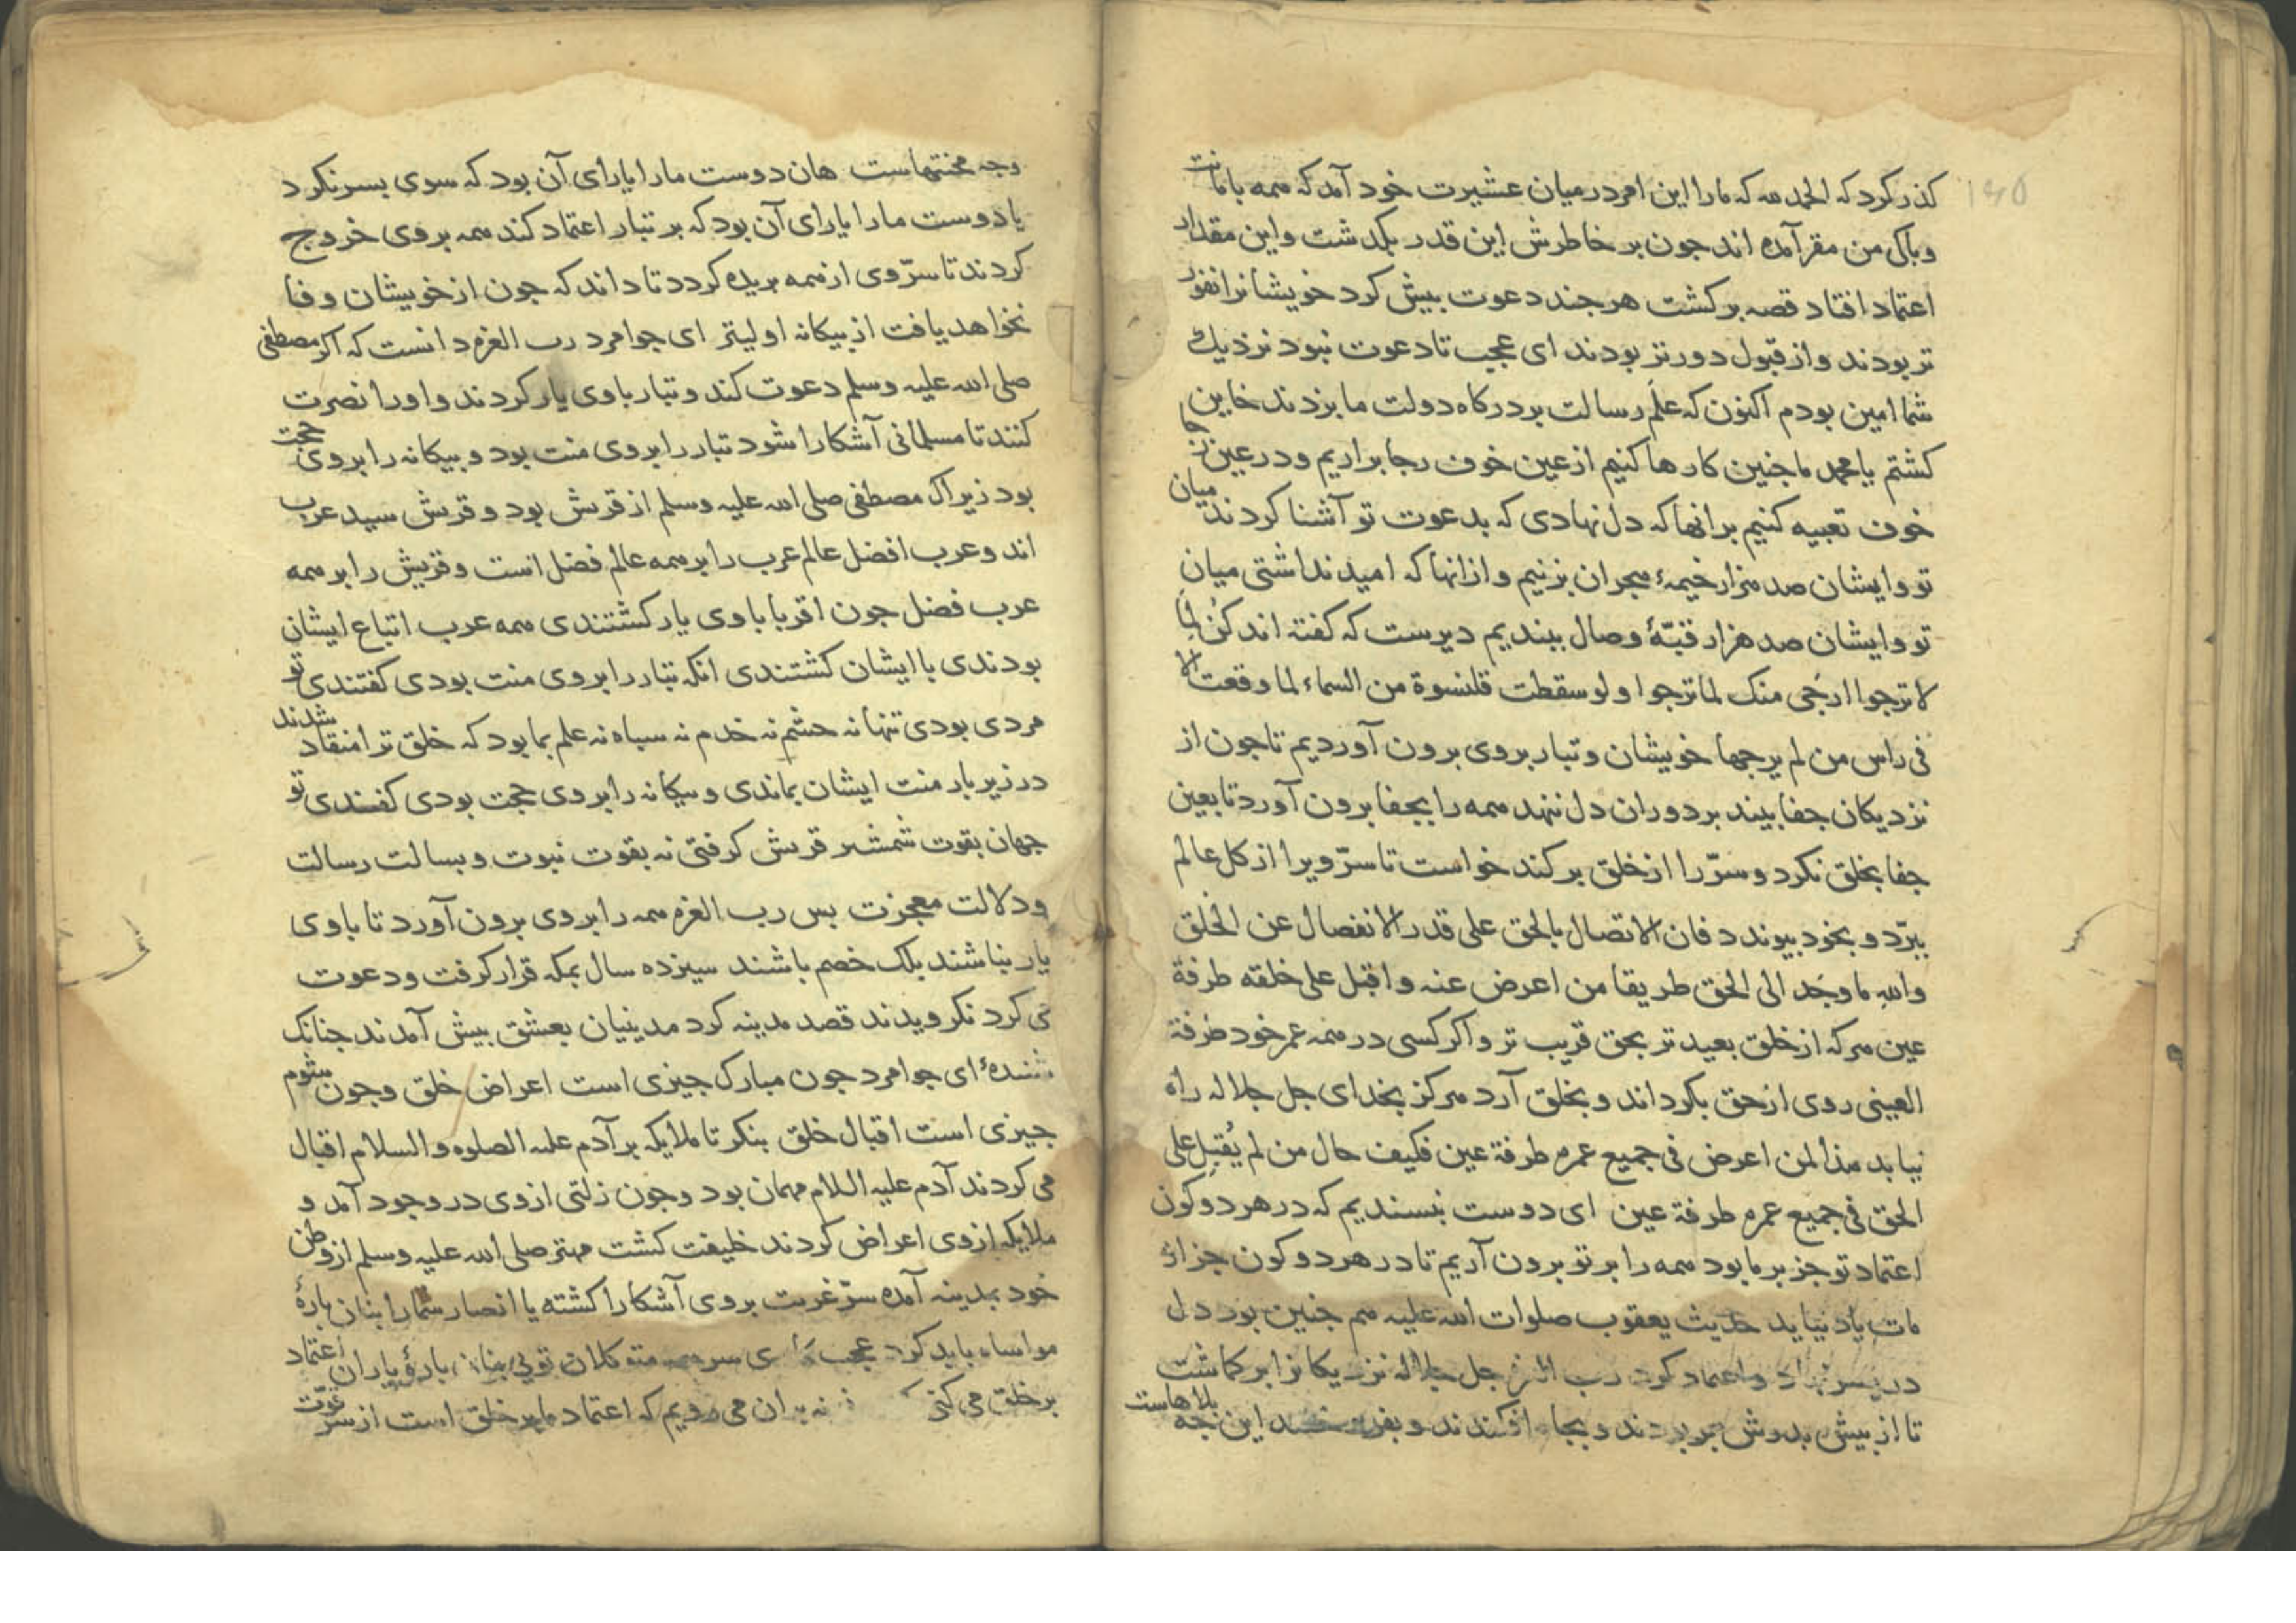 کذر کرد که الحمد لله که مارا این امر در میان عشیرت خود آمد که همه بامانت
و پاکی من مقر آمده اند جون بر خاطرش این قدر بکدشت و این مقدار
اعتماد افتاد قصه برکشت هر جند دعوت بیش کرد خویشانرا نفور
تر بودند و از قبول دورتر بودند ای عجب تا دعوت نبود نزدیک
شما امین بودم اکنون که علم رسالت بر درکاه دولت ما بزدند خاین
کشتم یا محمد ما جنین کارها کنیم از عین خوف رجا براریم و در عین رجا
خوف تعبیه کنیم برانها که دل نهادی که بدعوت تو آشنا کردند میان
تو و ایشان صد هزار خیمهٔ هجران بزنیم و ازانها که امید نداشتی میان
تو و ایشان صد هزار قبّهٔ وصال ببندیم دیرست که کفته اند کن لما
لا ترجوا ارجی منک لما ترجوا و لو سقطت قلنسوة من السماء لما وقعت الا
فی راس من لم یرجها خویشان و تبار بروی برون آوردیم تا جون از
نزدیکان جفا بیند بر دوران دل ننهد همه را بجفا برون آورد تا بعین
جفا بخلق نکرد و سرّ را از خلق برکند خواست تا سرّ ویرا از کل عالم
ببرّد و بخود بیوندد فان الاتصال بالحق علی قدر الانفصال عن الخلق
والله ما وجد الی الحق طریقا من اعرض عنه و اقبل علی خلقه طرفة
عین هر که از خلق بعید تر بحق قریب تر و اکر کسی در همه عمر خود طرفة
العینی روی از حق بکرداند و بخلق آرد هرکز بخدای جل جلاله راه
نیابد هذا لمن اعرض فی جمیع عمره طرفة عین فکیف حال من لم یُقبل علی
الحق فی جمیع عمره طرفة عین ای دوست نبسندیم که در هر دو کون
اعتماد تو جز بر ما بود همه را بر تو برون آریم تا در هر دو کون جز از
مات یاد نیاید حدیث یعقوب صلوات الله علیه هم جنین بود دل
در بسر نهاد و اعتماد کرد رب العزه جل جلاله نزدیکانرا برکماشت
تا از بیش بدوش بربردند و بجاه افکندند و بفروختند این نجه بلاهاست
وجه محنتهاست هان دوست مارا یارای آن بود که سوی بسر نکرد
یا دوست مارا یارای آن بود که بر تبار اعتماد کند همه بروی خروج
کردند تا سرّ وی از همه بریده کردد تا داند که جون از خویشان وفا
نخواهد یافت از بیکانه اولیتر ای جوامرد رب العزه دانست که اکر مصطفی
صلی الله علیه وسلم دعوت کند و تبار با وی یار کردند و اورا نصرت
کنند تا مسلمانی آشکارا شود تبار را بروی منت بود و بیکانه را بروی حجت
بود زیراک مصطفی صلی الله علیه وسلم از قریش بود و قریش سید عرب
اند و عرب افضل عالم عرب را بر همه عالم فضل است و قریش را بر همه
عرب فضل جون اقربا با وی یار کشتندی همه عرب اتباع ایشان
بودندی با ایشان کشتندی انکه تبار را بروی منت بودی کفتندی تو
مردی بودی تنها نه حشم نه خدم نه سباه نه علم بما بود که خلق ترا منقاد شدند
در زیر بار منت ایشان بماندی و بیکانه را بروی حجت بودی کفتندی تو
جهان بقوت شمشیر قریش کرفتی نه بقوت نبوت و بسالت رسالت
و دلالت معجزت بس رب العزه همه را بروی برون آورد تا با وی
یار نباشند بلک خصم باشند سیزده سال بمکه قرار کرفت و دعوت
می کرد نکرویدند قصد مدینه کرد مدینیان بعشق بیش آمدند جنانک
شنیدهٔ ای جوامرد جون مبارک جیزی است اعراض خلق و جون شوم
جیزی است اقبال خلق بنکر تا ملایکه بر آدم علیه الصلوه والسلام اقبال
می کردند آدم علیه السلام مهمان بود و جون زلتی از وی در وجود آمد و
ملایکه از وی اعراض کردند خلیفت کشت مهتر صلی الله علیه وسلم از وطن
خود بمدینه آمده سرّ غربت بروی آشکارا کشته یا انصار شمارا بنان بارهٔ
مواساه باید کرد عجب سر همه متوکلان تویی بنان بارهٔ یاران اعتماد
بر خلق می کنی نه بدان می رویم که اعتماد ما بر خلق است از سر نبوّت